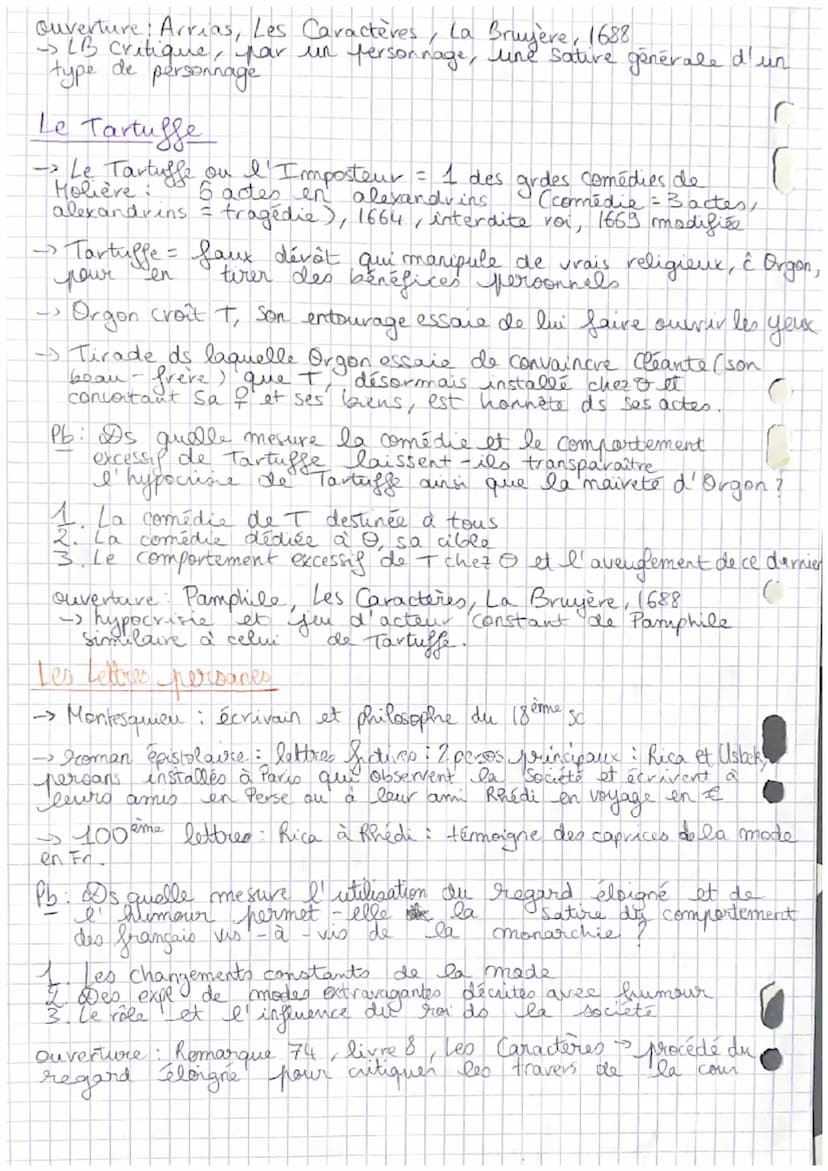 ouverture : Arrias, Les Caractères, La Bruyère, 1688
-> LB critique, par un personnage, une satire générale d'un
type de personnage
Le Tartuffe
-> Le Tartuffe ou l'Imposteur = 1 des grdes comédies de
Molière : 5 actes en alexandrins (comédie = 3 actes,
alexandrins = tragédie), 1664, interdite roi, 1669 modifiée
-> Tartuffe = faux dévôt qui manipule de vrais religieux, ĉ Orgon,
pour en tirer des bénéfices personnels
-> Orgon croît T, son entourage essaie de lui faire ouvrir les yeux
-> Tirade ds laquelle Orgon essaie de convaincre Cléante (son
beau-frère) que T, désormais installé chez O et
convoitant sa ♀ et ses biens, est honnête ds ses actes.
Pb : Ds quelle mesure la comédie et le comportement
excessif de Tartuffe laissent-ils transparaître
l'hypocrisie de Tartuffe ainsi que la naïveté d'Orgon ?
1. La comédie de T destinée à tous
2. La comédie dédiée à O, sa cible
3. Le comportement excessif de T chez O et l'aveuglement de ce dernier
ouverture : Pamphile, Les Caractères, La Bruyère, 1688
-> hypocrisie et jeu d'acteur constant de Pamphile
similaire à celui de Tartuffe.
Les Lettres persanes
-> Montesquieu : écrivain et philosophe du 18ème sc
-> roman épistolaire : lettres fictives : 2 persos principaux : Rica et Usbek,
persans installés à Paris qui observent la société et écrivent à
leurs amis en Perse ou à leur ami Rhédi en voyage en €
-> 100ème lettres : Rica à Rhédi : témoigne des caprices de la mode
en Fr.
Pb : Ds quelle mesure l'utilisation du regard éloigné et de
l'humour permet-elle la satire du comportement
des français vis-à-vis de la monarchie ?
1. Les changements constants de la mode
2. Des expl de modes extravagantes décrites avec humour
3. Le rôle et l'influence du roi ds la société
ouverture : Remarque 74, livre 8, Les Caractères -> procédé du
regard éloigné pour critiquer les travers de la cour